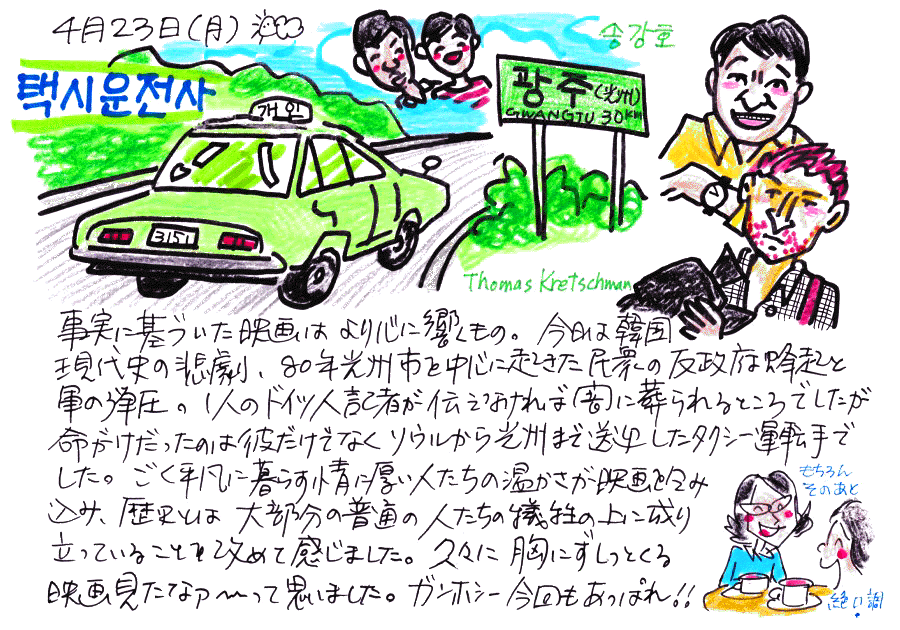 4月23日(月)
택시운전사
개인
3151
송강호
광주(光州)
GWANGJU 30KM
Thomas Kretschman
事実に基づいた映画はより心に響くもの。今日は韓国
現代史の悲劇、80年光州市を中心に起きた民衆の反政府蜂起と
軍の弾圧。1人のドイツ人記者が伝えなければ闇に葬られるところでしたが
命がけだったのは彼だけでなくソウルから光州まで送迎したタクシー運転手で
した。ごく平凡に暮らす情に厚い人たちの温かさが映画を包み
込み、歴史とは大部分の普通の人たちの犠牲の上に成り
立っていることを改めて感じました。久々に胸にずしっとくる
映画見たなァ〜って思いました。ガンホシー今回もあっぱれ!!
もちろん
そのあと
絶口調